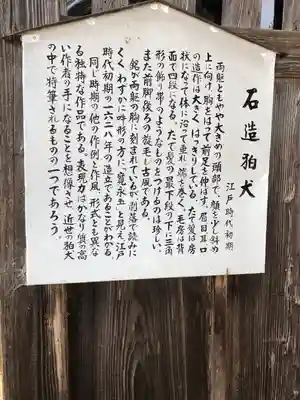 石造狛犬
江戸時代初期
両躯ともやや大きめの頭部で、顔を少し斜め
上に向け、胸をはって前足を伸ばす。眉目耳口
の造作は大きく、はっきりしている。たて髪は房
状になって体に沿って垂れ、落ち着く。毛房は背
面で四段になる。たて髪の最下段の下に三角
形の飾り帯のようなものをつけるのは珍しい。
また前脚後ろの旋毛し古風である。
銘が両躯の胸に刻まれているが剥落で読みに
くく、わずかに吽形の方に「寛永五」と見え、江戸
時代初期の一六二八年の造立であることがわかる。
同じ時期の他の作例と作風、形式とも異な
る独特な作品である。表現力はかなり質の高
い作者の手になることを想像させ、近世の狛犬
の中で特筆されるものの一つであろう。